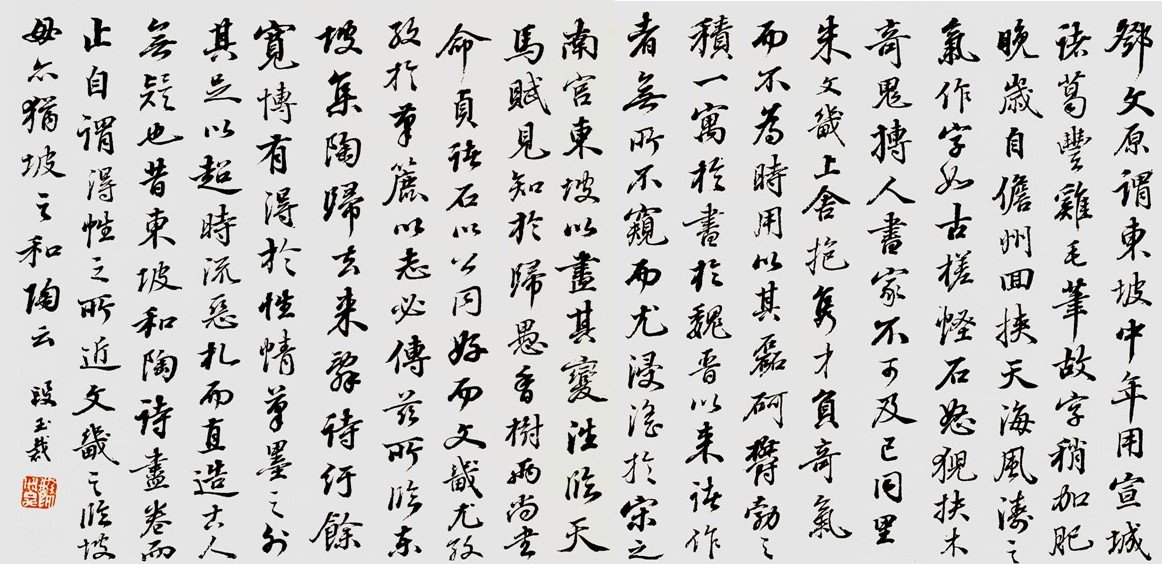 鄧文原謂東坡中年用宣城
諸葛豐雞毛筆故字稍加肥
晚歲自儋州回挾天海風濤之
氣作字如古槎怪石怒猊抉木
奇鬼搏人書家不可及已同里
朱文畿上舍抱雋才負奇氣
而不為時用以其磊砢鬱勃之
積一寓於書於魏晉以來諸作
者無所不窺而尤浸淫於宋之
南宮東坡以盡其變法臨天
馬賦見知於歸愚香樹兩尚書
命貞諸石以公同好而文畿尤孜
孜於筆簏以必傳茲所臨東
坡集陶歸去來辭詩紆餘
寬博有得於性情筆墨之外
其足以超時流惡札而直造古人
無疑也昔東坡和陶詩盡卷而
止自謂得性之所近文畿之臨坡
毋亦猶坡之和陶云 段玉裁